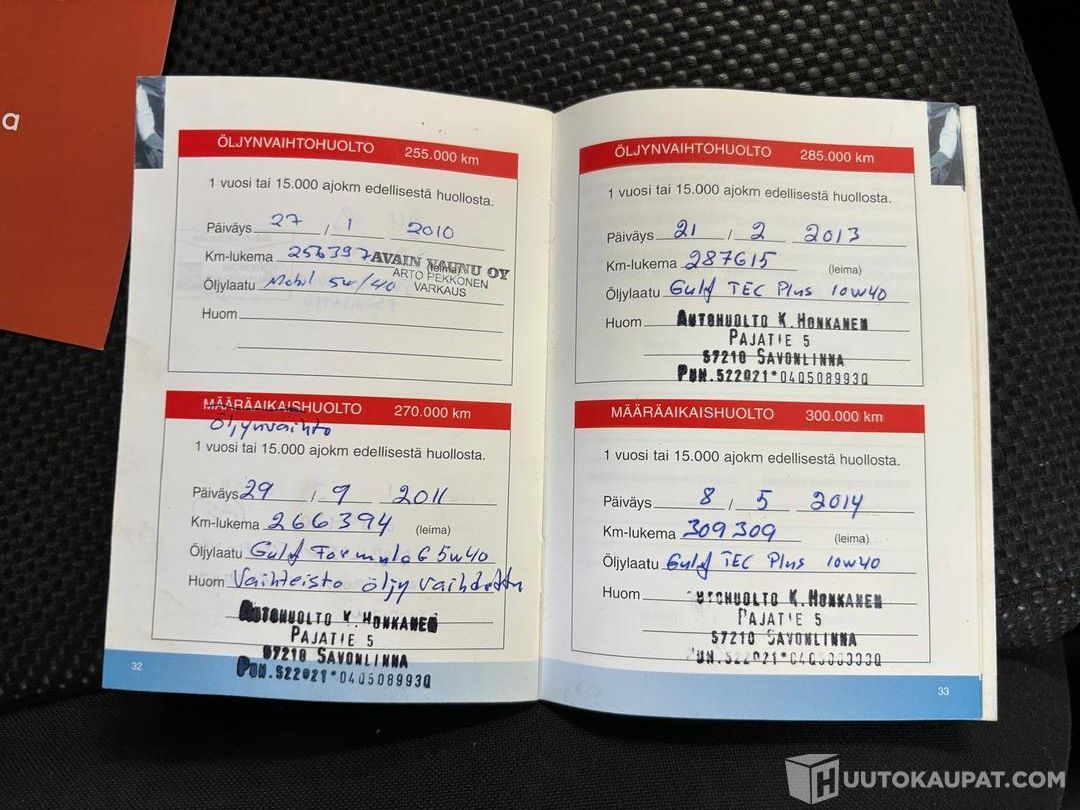 a
ÖLJYNVAIHTOHUOLTO 255.000 km
1 vuosi tai 15.000 ajokm edellisestä huollosta.
Päiväys 27 / 1 2010
Km-lukema 256397 (leima)
AVAIN VAUNU OY
ARTO PEKKONEN
VARKAUS
Öljylaatu Mobil 5w/40
Huom
MÄÄRÄAIKAISHUOLTO 270.000 km
Öljynvaihto
1 vuosi tai 15.000 ajokm edellisestä huollosta.
Päiväys 29 / 9 2011
Km-lukema 266394 (leima)
Öljylaatu Gulf Formula G 5w40
Huom Vaihteisto öljy vaihdettu
AUTOHUOLTO K.HONKANEN
PAJATIE 5
57210 SAVONLINNA
PUH.522021*0405089930
32
ÖLJYNVAIHTOHUOLTO 285.000 km
1 vuosi tai 15.000 ajokm edellisestä huollosta.
Päiväys 21 / 2 2013
Km-lukema 287615 (leima)
Öljylaatu Gulf TEC Plus 10w40
Huom
AUTOHUOLTO K.HONKANEN
PAJATIE 5
57210 SAVONLINNA
PUH.522021*0405089930
MÄÄRÄAIKAISHUOLTO 300.000 km
1 vuosi tai 15.000 ajokm edellisestä huollosta.
Päiväys 8 / 5 2014
Km-lukema 309309 (leima)
Öljylaatu Gulf TEC Plus 10w40
Huom
UTOHUOLTO K.HONKANEN
PAJATIE 5
57210 SAVONLINNA
33
HUUTOKAUPAT.COM